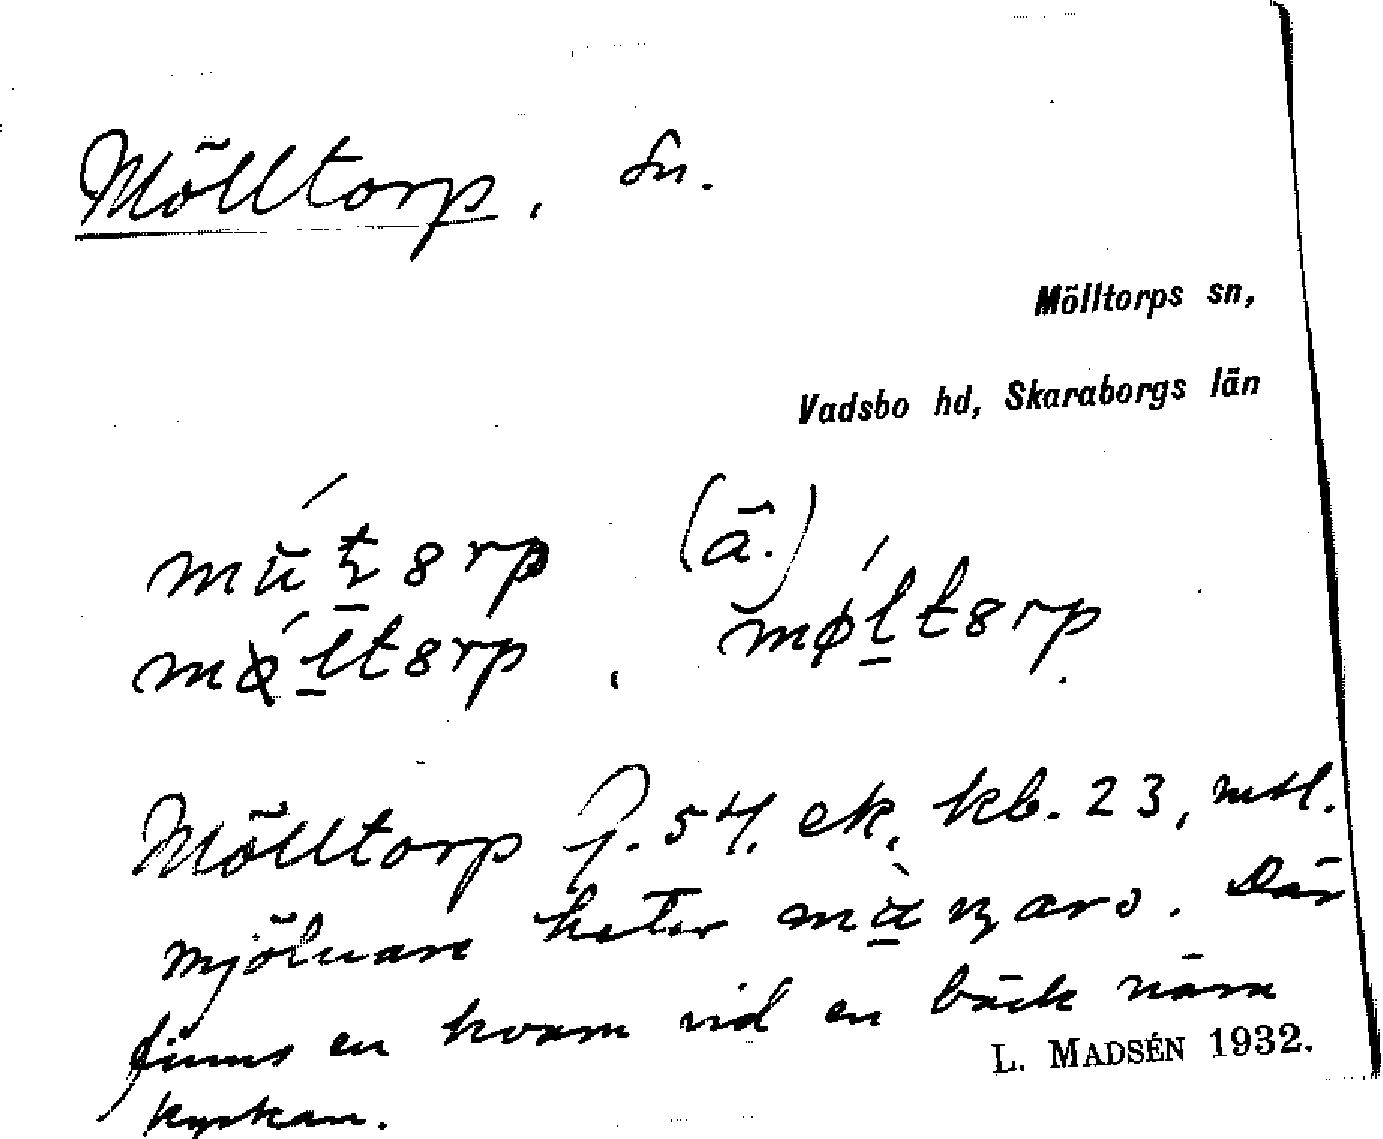 Mölltorp, Sn.
Mölltorps sn,
Vadsbo hd, Skaraborgs län
(ä.)
møltorp
Mölltorp J. 54. ek. kb. 23, mtl.
mjölnare heter. Där
finns en kvarn vid en bäck nära
L. MADSÉN 1932.
kyrkan.